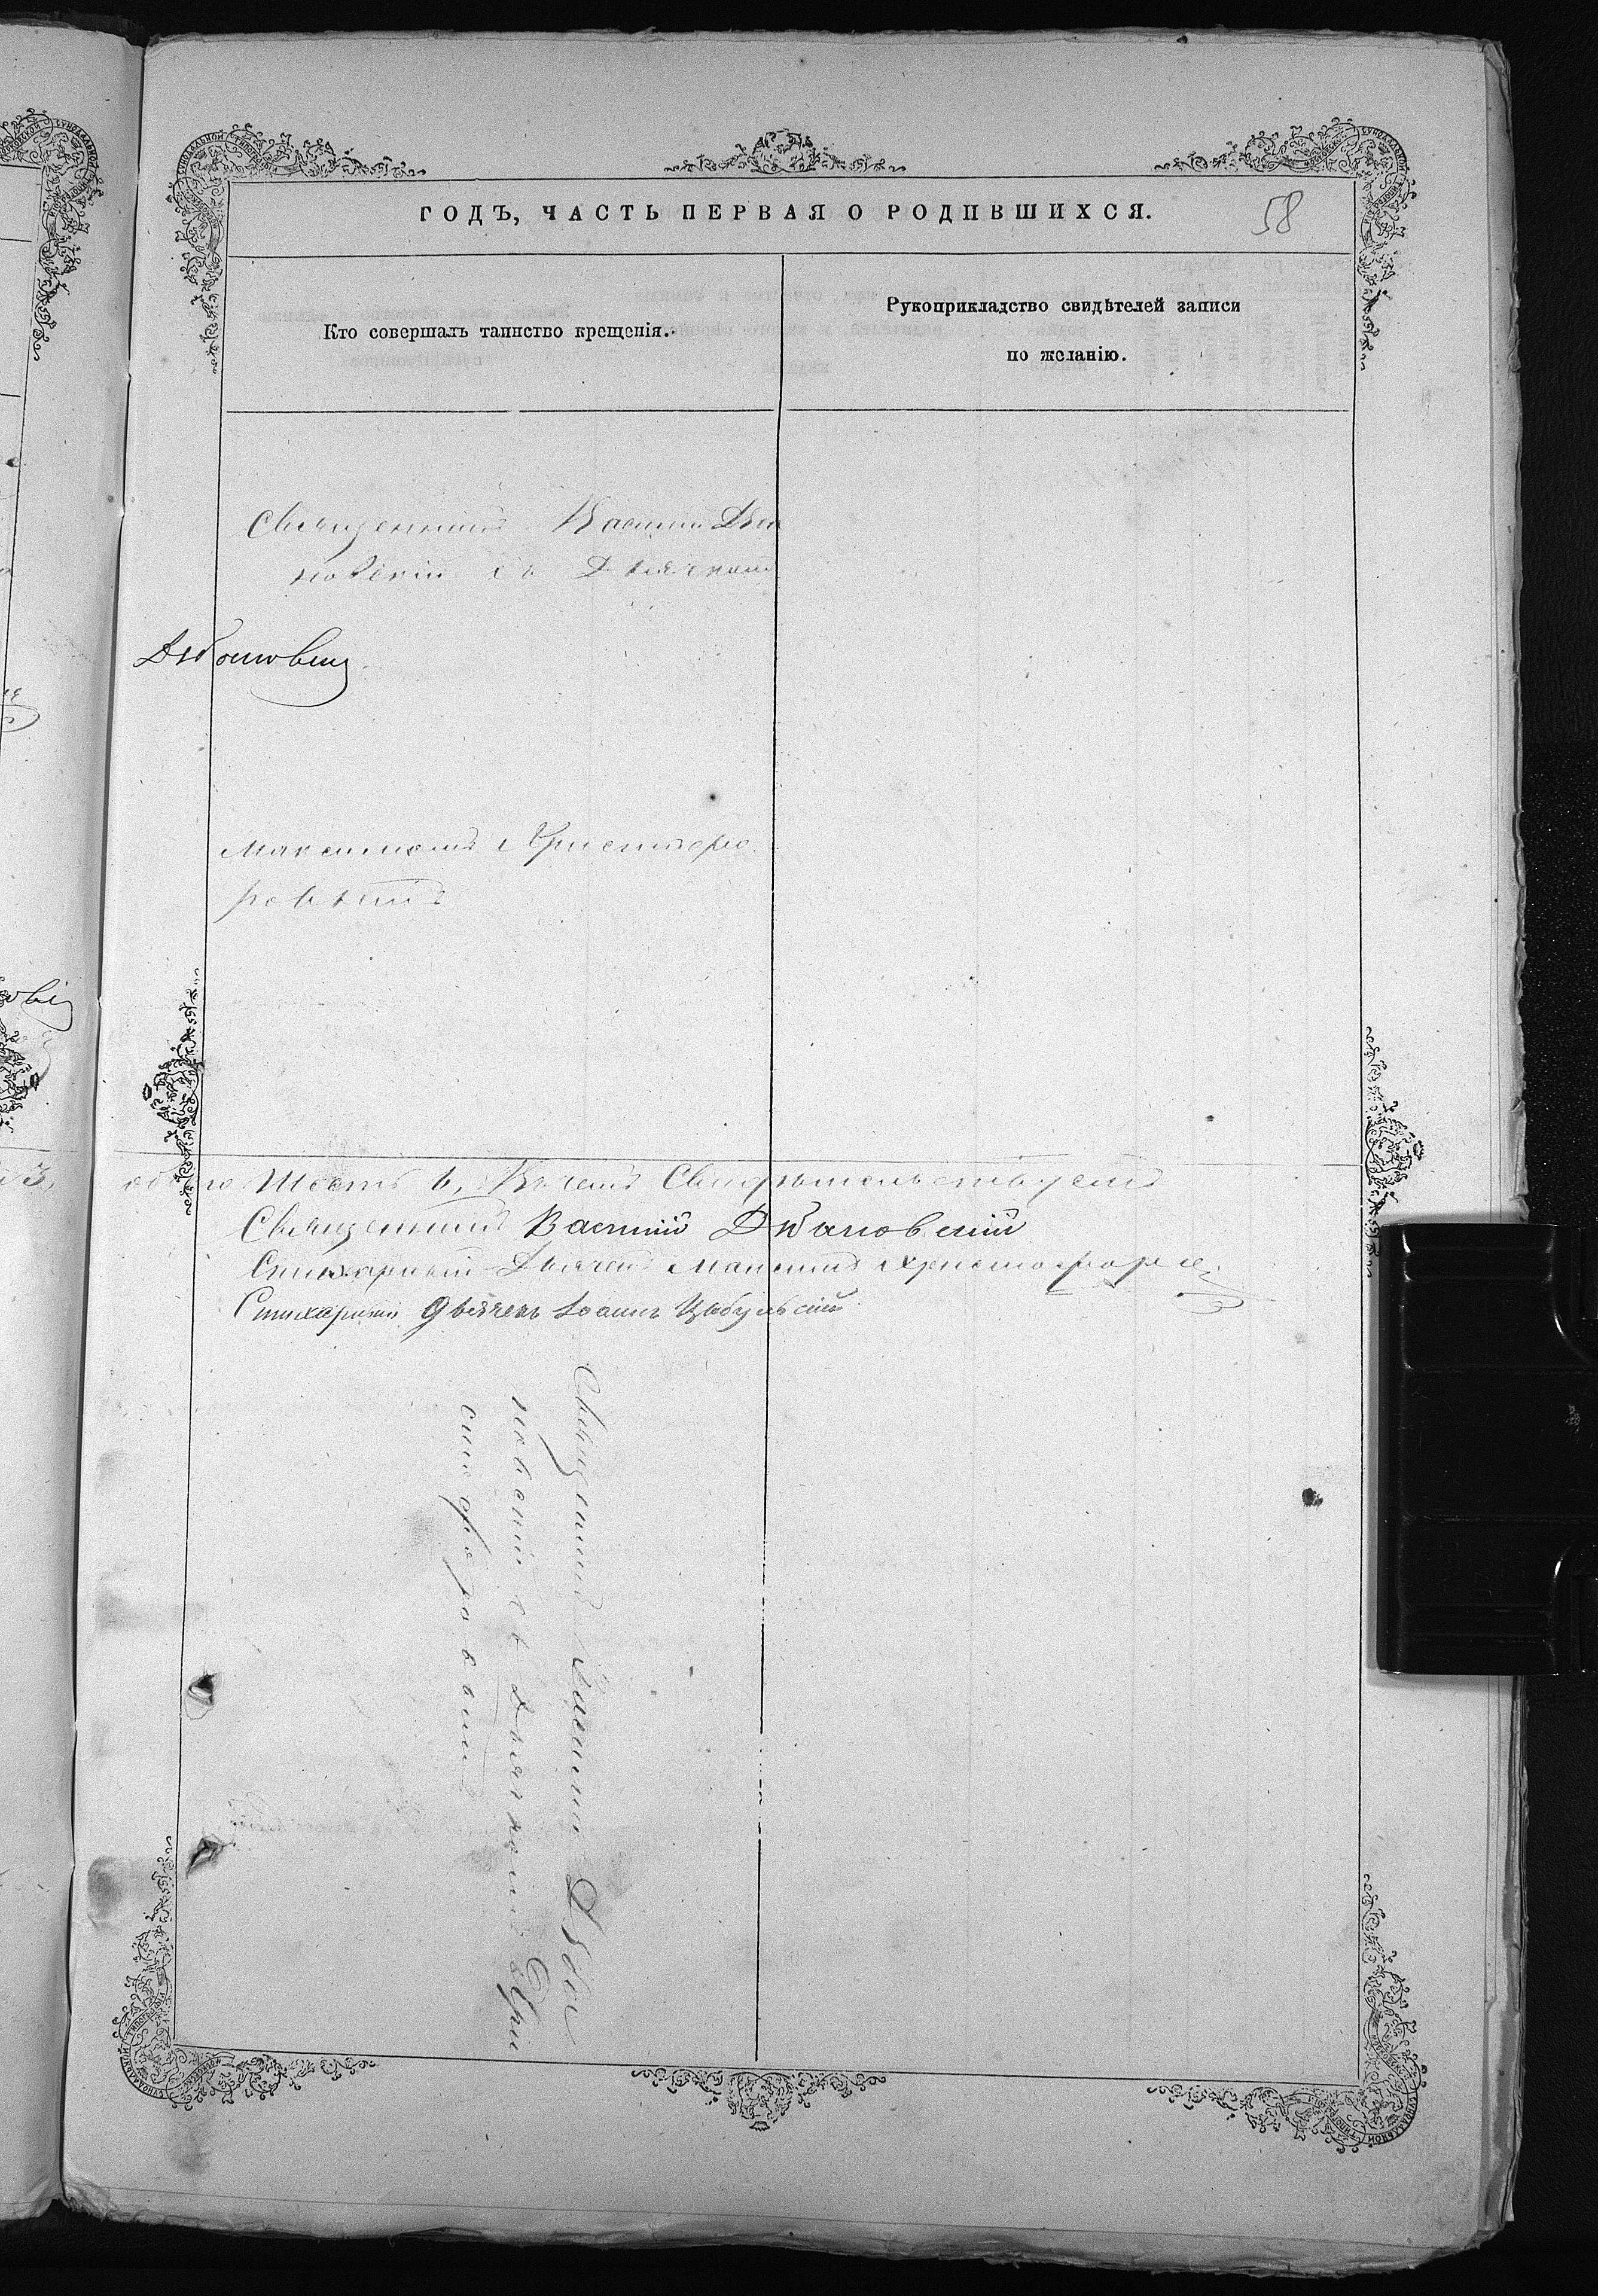 ГОДЪ, ЧАСТЬ ПЕРВАЯ О РОДИВШИХСЯ.
58
Кто совершалъ таинство крещенія.
Рукоприкладство свидѣтелей записи
по желанію.
Священникъ Василій Дба
новскій съ Дьячкомъ
Максимомъ Христофо
ровымъ
обоего Шесть 6, В чемъ Свидѣтельствуемъ
Священникъ Василій Дбановскій
Стихарный Дьячекъ Максимъ Христофоро
Стихарный Дьячекъ Іоаннъ Цыбульскій
Священникъ Василій Дба
новскій съ Дьячкомъ Хри
стофоровымъ